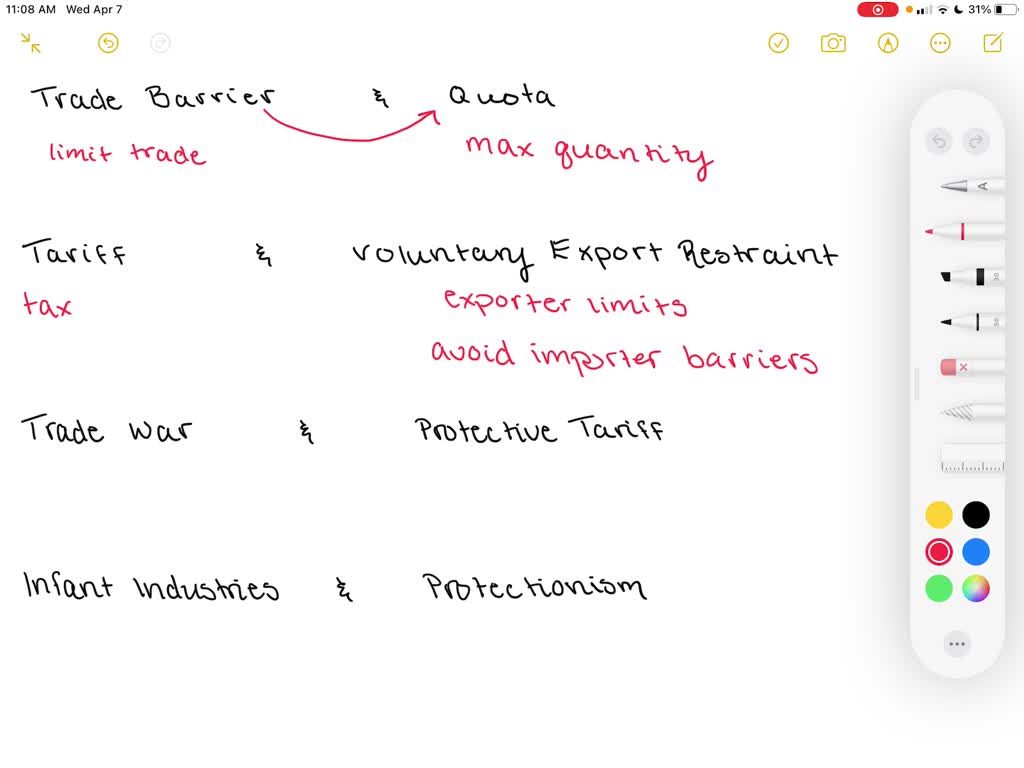 11:08 AM Wed Apr 7 31%
Trade Barrier & Quota
limit trade max quantity
Tariff & Voluntary Export Restraint
tax exporter limits
avoid importer barriers
Trade War & Protective Tariff
Infant Industries & Protectionism